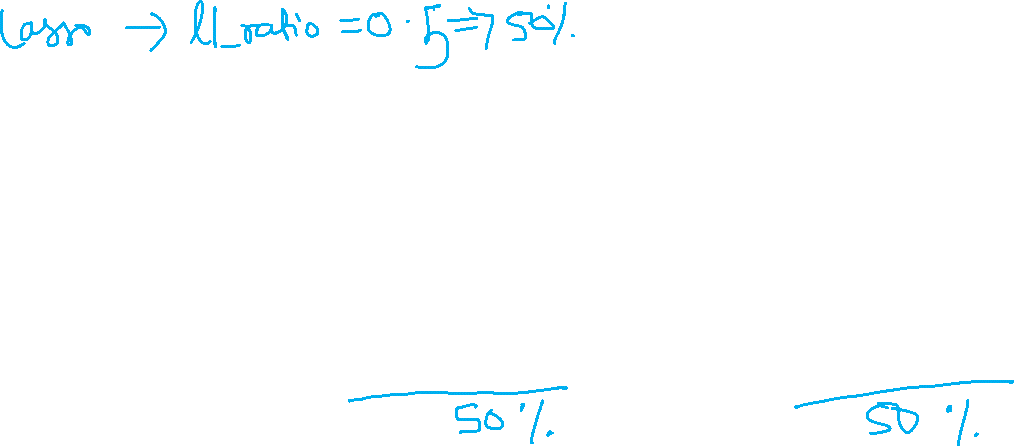 Lasso → l1_ratio = 0.5 => 50%.
50%. 50%.